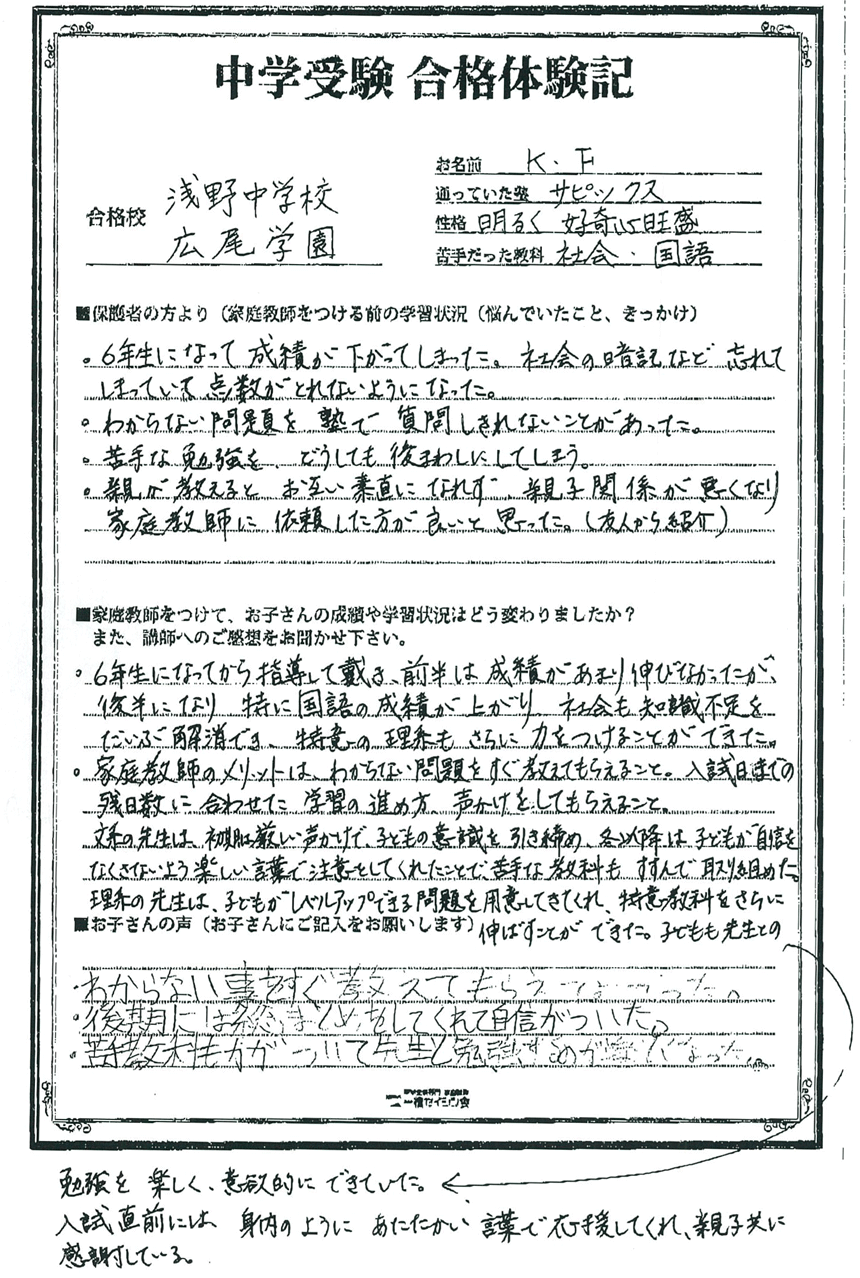 中学受験 合格体験記
合格校 浅野中学校
広尾学園
お名前 K.F
通っていた塾 サピックス
性格 明るく 好奇心旺盛
苦手だった教科 社会・国語
■保護者の方より（家庭教師をつける前の学習状況（悩んでいたこと、きっかけ）
。6年生になって 成績が 下がってしまった。社会の暗記など 忘れて
しまっていて 点数がとれないようになった。
。わからない問題を 塾で 質問しきれないことがあった。
。苦手な勉強を、どうしても 後まわしにしてしまう。
。親が 教えると お互い 素直に なれず、親子関係が 悪くなり
家庭教師に 依頼した方が 良いと 思った。（友人から紹介）
■家庭教師をつけて、お子さんの成績や学習状況はどう変わりましたか？
また、講師へのご感想をお聞かせ下さい。
。6年生になってから 指導して戴き、前半は 成績があまり伸びなかったが、
後半になり 特に 国語の成績が 上がり 社会も 知識不足を
だいぶ 解消でき、特意の 理系も さらに 力をつけることが できた。
。家庭教師のメリットは、わからない問題をすぐ教えてもらえること。入試日までの
残日数に 合わせた 学習の 進め方、声かけを してもらえること。
文系の先生は、初期は厳しい声かけで、子どもの意識を 引き締め、冬以降は 子どもが自信を
なくさないよう 楽しい 言葉で 注意をしてくれたことで、苦手な教科も すすんで 取り組めた。
理系の先生は、子どもがレベルアップできる問題を用意してきてくれ、特意教科をさらに
■お子さんの声（お子さんにご記入をお願いします） 伸ばすことが できた。子どもも先生との
・わからない事もすぐ教えてもらえてよかった。
・後期には総まとめをしてくれて自信がついた。
・苦手教科も力がついて先生と勉強するのが楽しくなった。
勉強を 楽しく、意欲的に できていた。
入試直前には、身内のように あたたかい 言葉で 応援してくれ、親子共に
感謝している。